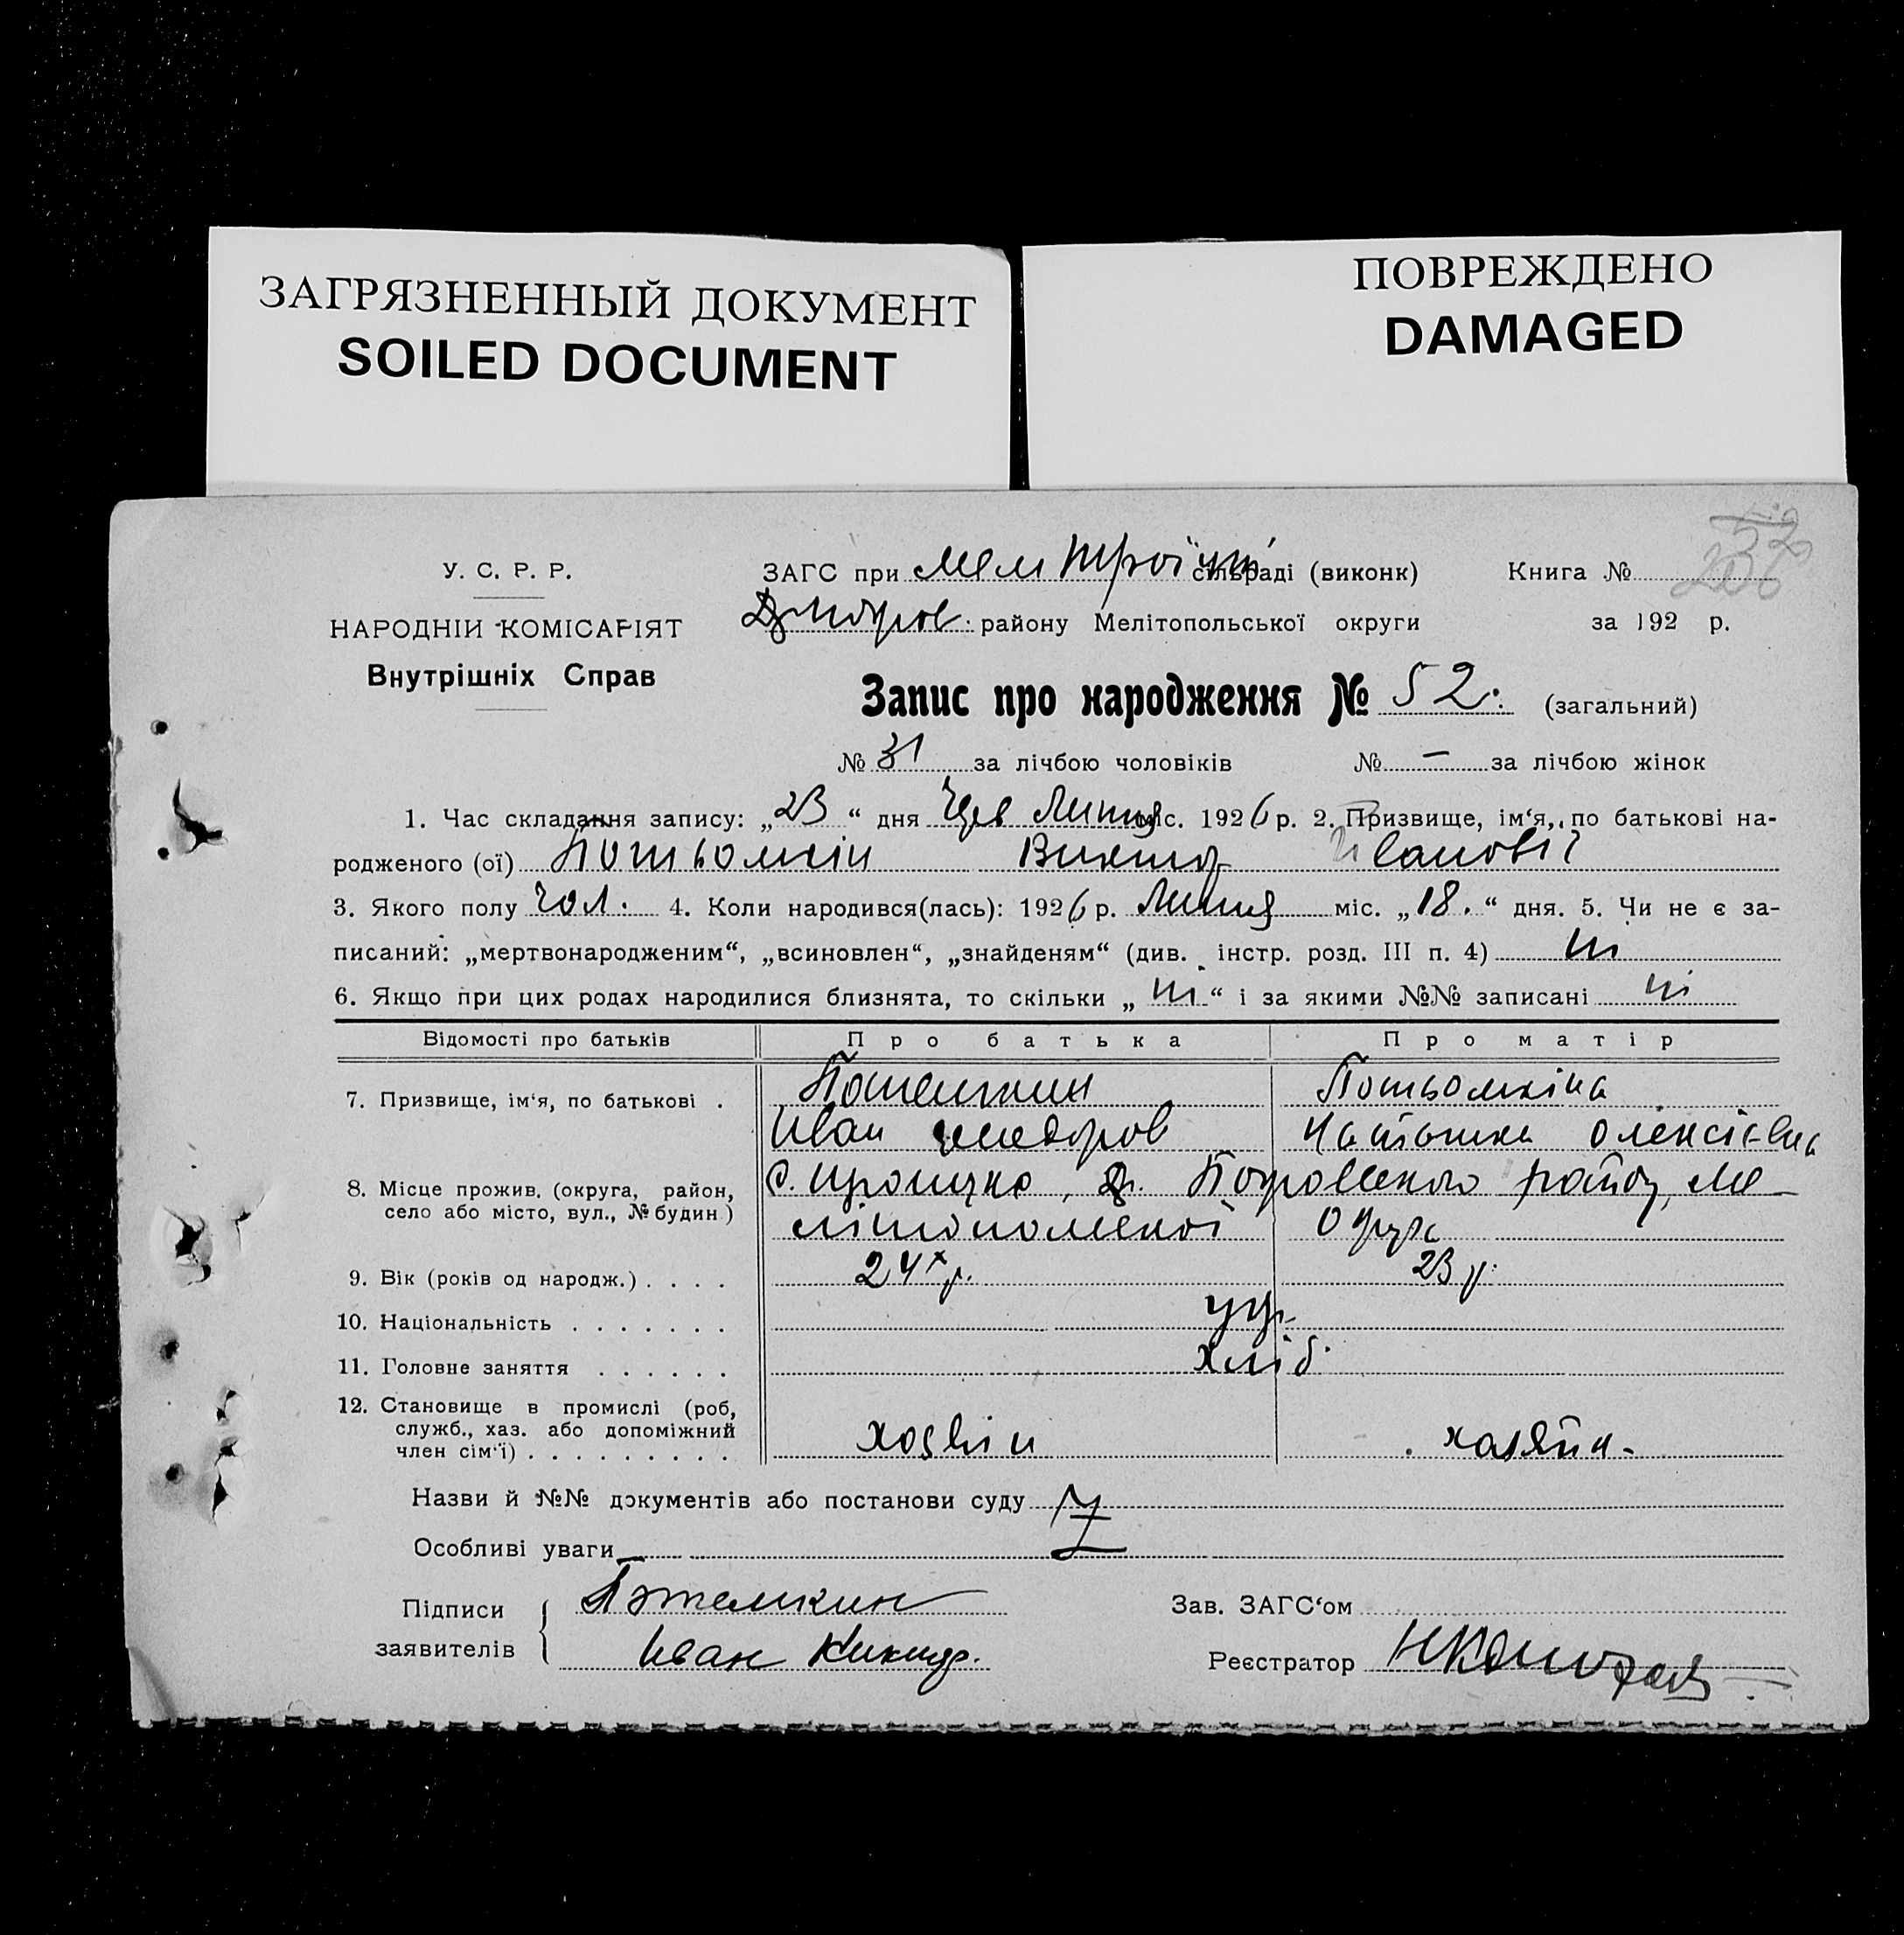 ЗАГРЯЗНЕННЫЙ ДОКУМЕНТ
SOILED DOCUMENT
ПОВРЕЖДЕНО
DAMAGED
У. С. Р. Р.
НАРОДНІИ КОМІСАРІЯТ
Внутрішніх Справ
ЗАГС при сільраді (виконк) Книга №
району Мелітопольської округи за 192 р.
Запис про народження № 52. (загальний)
№ 31 за лічбою чоловіків № — за лічбою жінок
1. Час складання запису: „23“ дня Липня міс. 1926 р. 2. Призвище, ім‘я, по батькові на-
родженого (ої) Потьомкін Виктор Іванович
3. Якого полу чол. 4. Коли народився(лась): 1926 р. Липня міс. „18.“ дня. 5. Чи не є за-
писаний: „мертвонародженим“, „всиновлен“, „знайденям“ (див. інстр. розд. III п. 4) ні
6. Якщо при цих родах народилися близнята, то скільки „ні“ і за якими №№ записані ні
Відомості про батьків Про батька Про матір
7. Призвище, ім‘я, по батькові . Потемкин Потьомкіна
Иван Олексіевна
8. Місце прожив. (округа, район, село або місто, вул., № будин)
с. району, Ме-
літопольскої Округи
9. Вік (років од народж.) . . . . 24х р. 23 р.
10. Національність . . . . . . . укр.
11. Головне заняття . . . . . . хліб.
12. Становище в промислі (роб,
служб., хаз. або допоміжний
член сім‘ї) . . . . . . . . . хозяін хазяйн-
Назви й №№ документів або постанови суду
Особливі уваги
Підписи заявителів
Потемкин
Иван
Зав. ЗАГС‘ом
Реєстратор